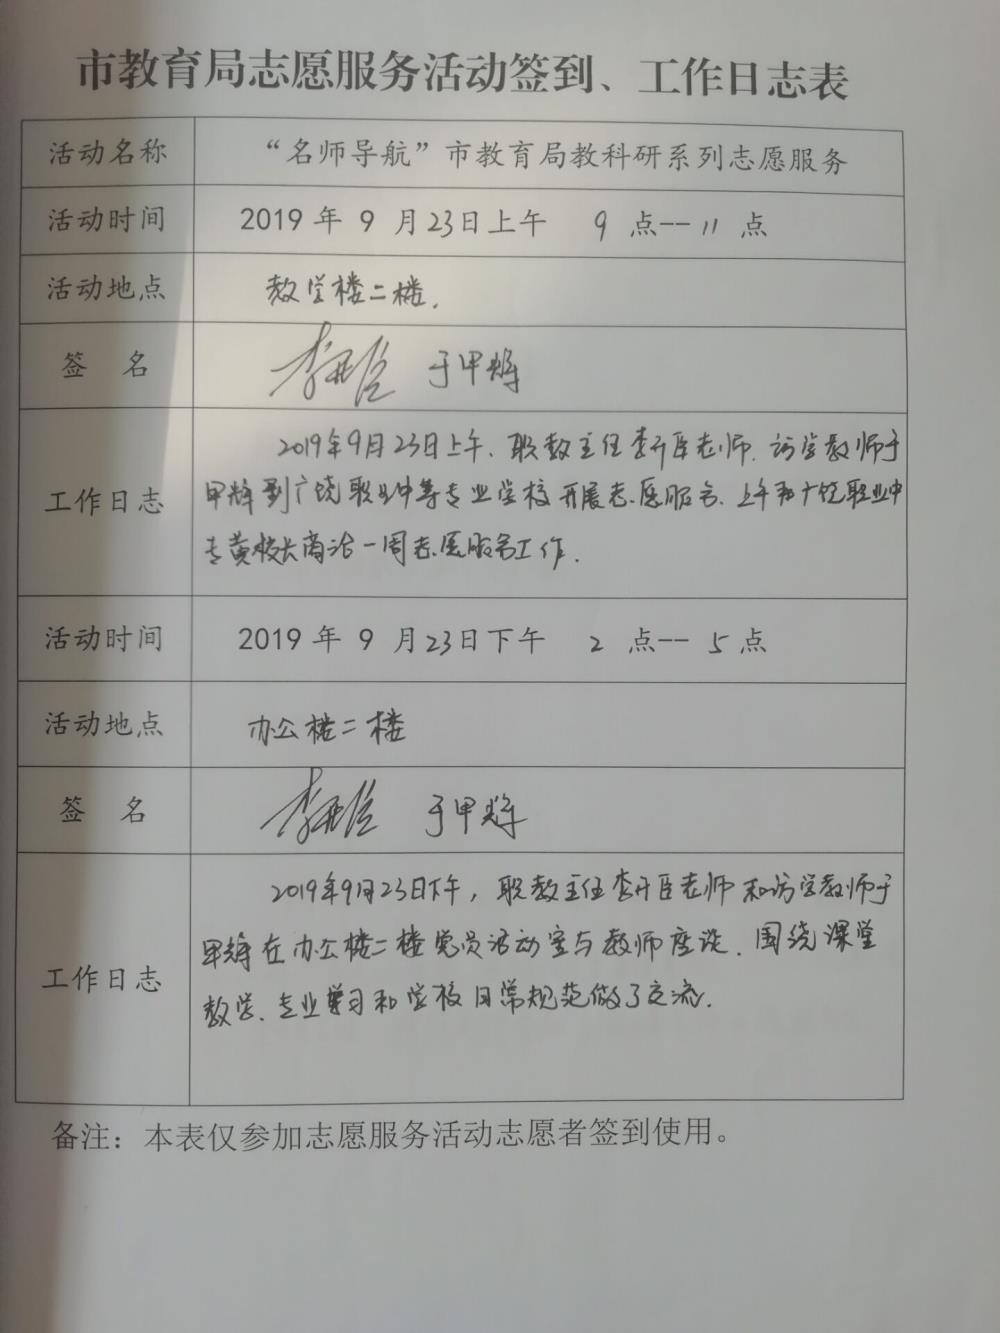 市教育局志愿服务活动签到、工作日志表
活动名称 “名师导航”市教育局教科研系列志愿服务
活动时间 2019 年 9 月23日上午 9 点--11 点
活动地点 教学楼二楼.
签 名 于甲辉
2019年9月23日上午、职教主任李开臣老师、访学教师于
工作日志 甲辉到广饶职业中等专业学校开展志愿服务、上午和广饶职业中
专黄校长商洽一周志愿服务工作.
活动时间 2019 年 9 月23日下午 2 点--5 点
活动地点 办公楼二楼
签 名 于甲辉
2019年9月23日下午，职教主任李开臣老师和访学教师于
甲辉在办公楼二楼党员活动室与教师座谈、围绕课堂
工作日志 教学、专业学习和学校日常规范做了交流.
备注：本表仅参加志愿服务活动志愿者签到使用。